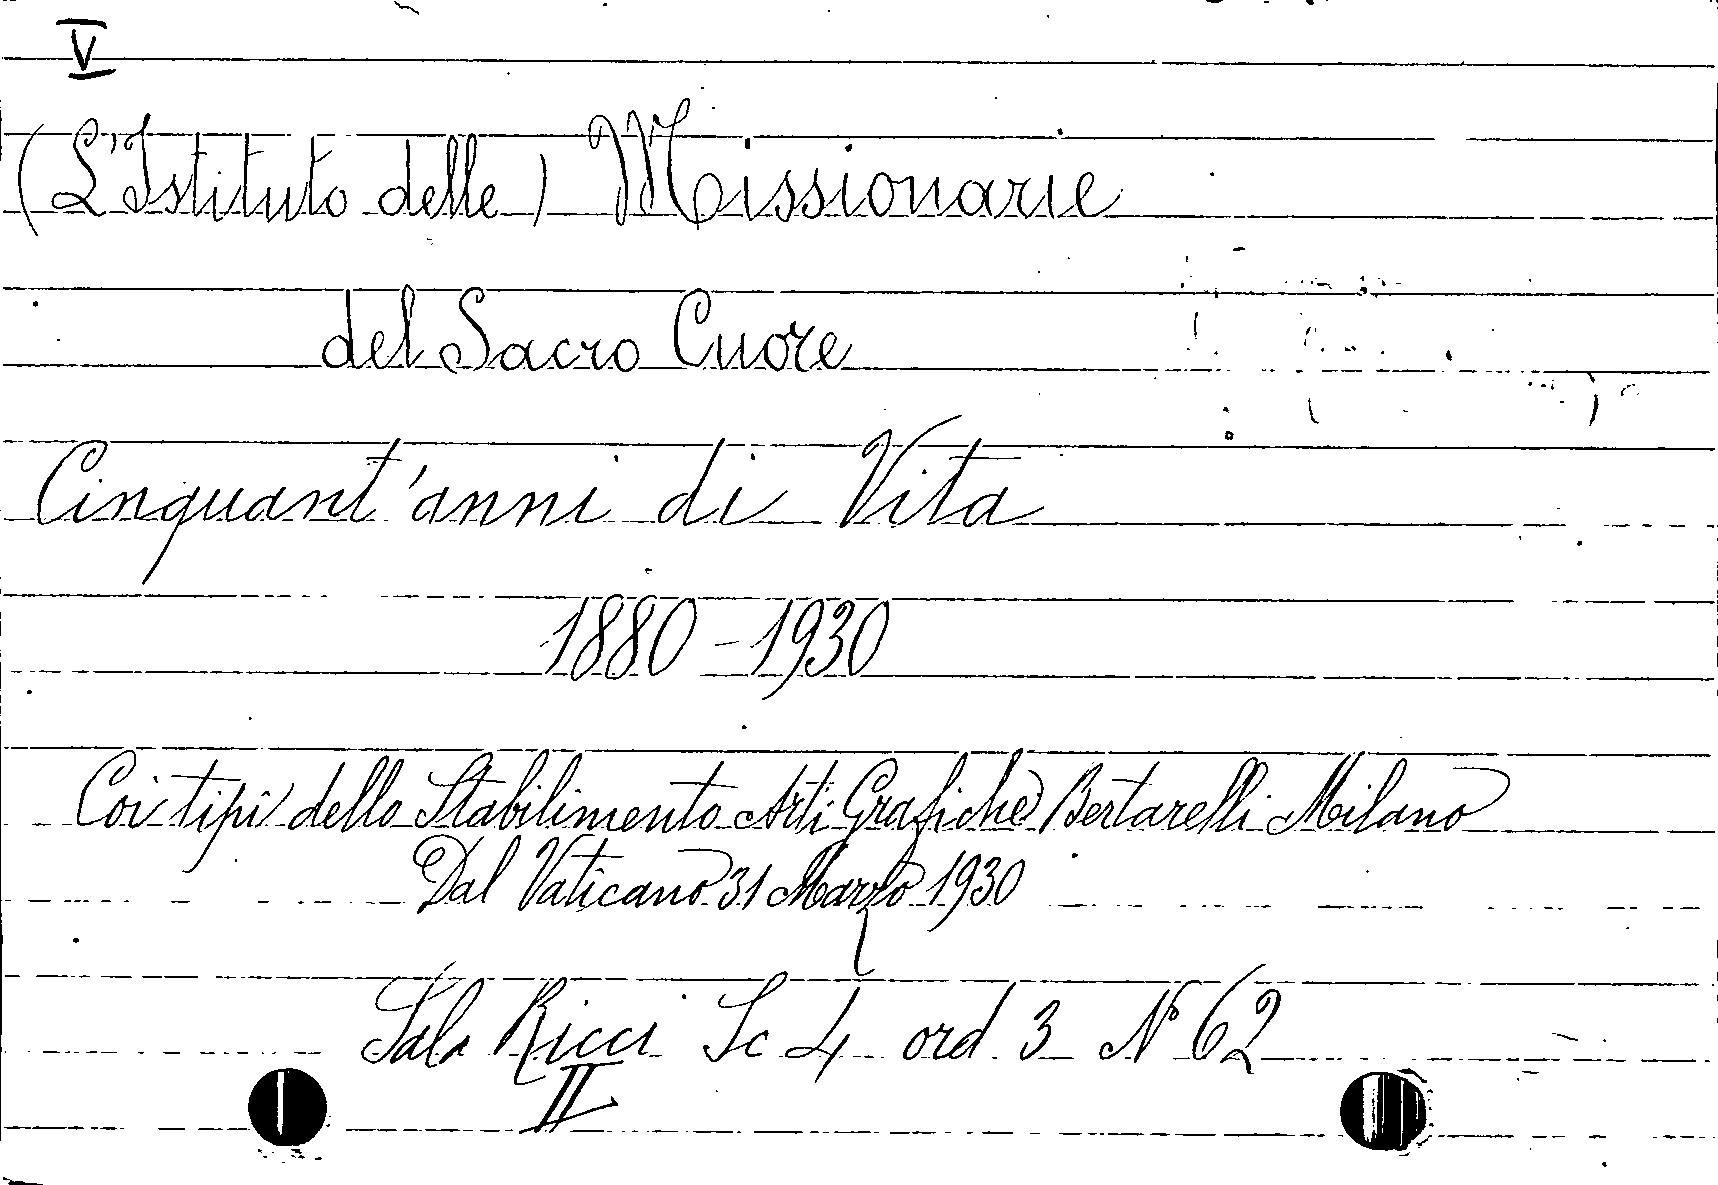 V
(L'Istituto delle) Missionarie
del Sacro Cuore
Cinquant'anni di Vita
1880-1930
Coi tipi dello Stabilimento Arti Grafiche Bertarelli Milano
Dal Vaticano 31 Marzo 1930
Sala Ricci Sc 4 ord 3 N° 62
II